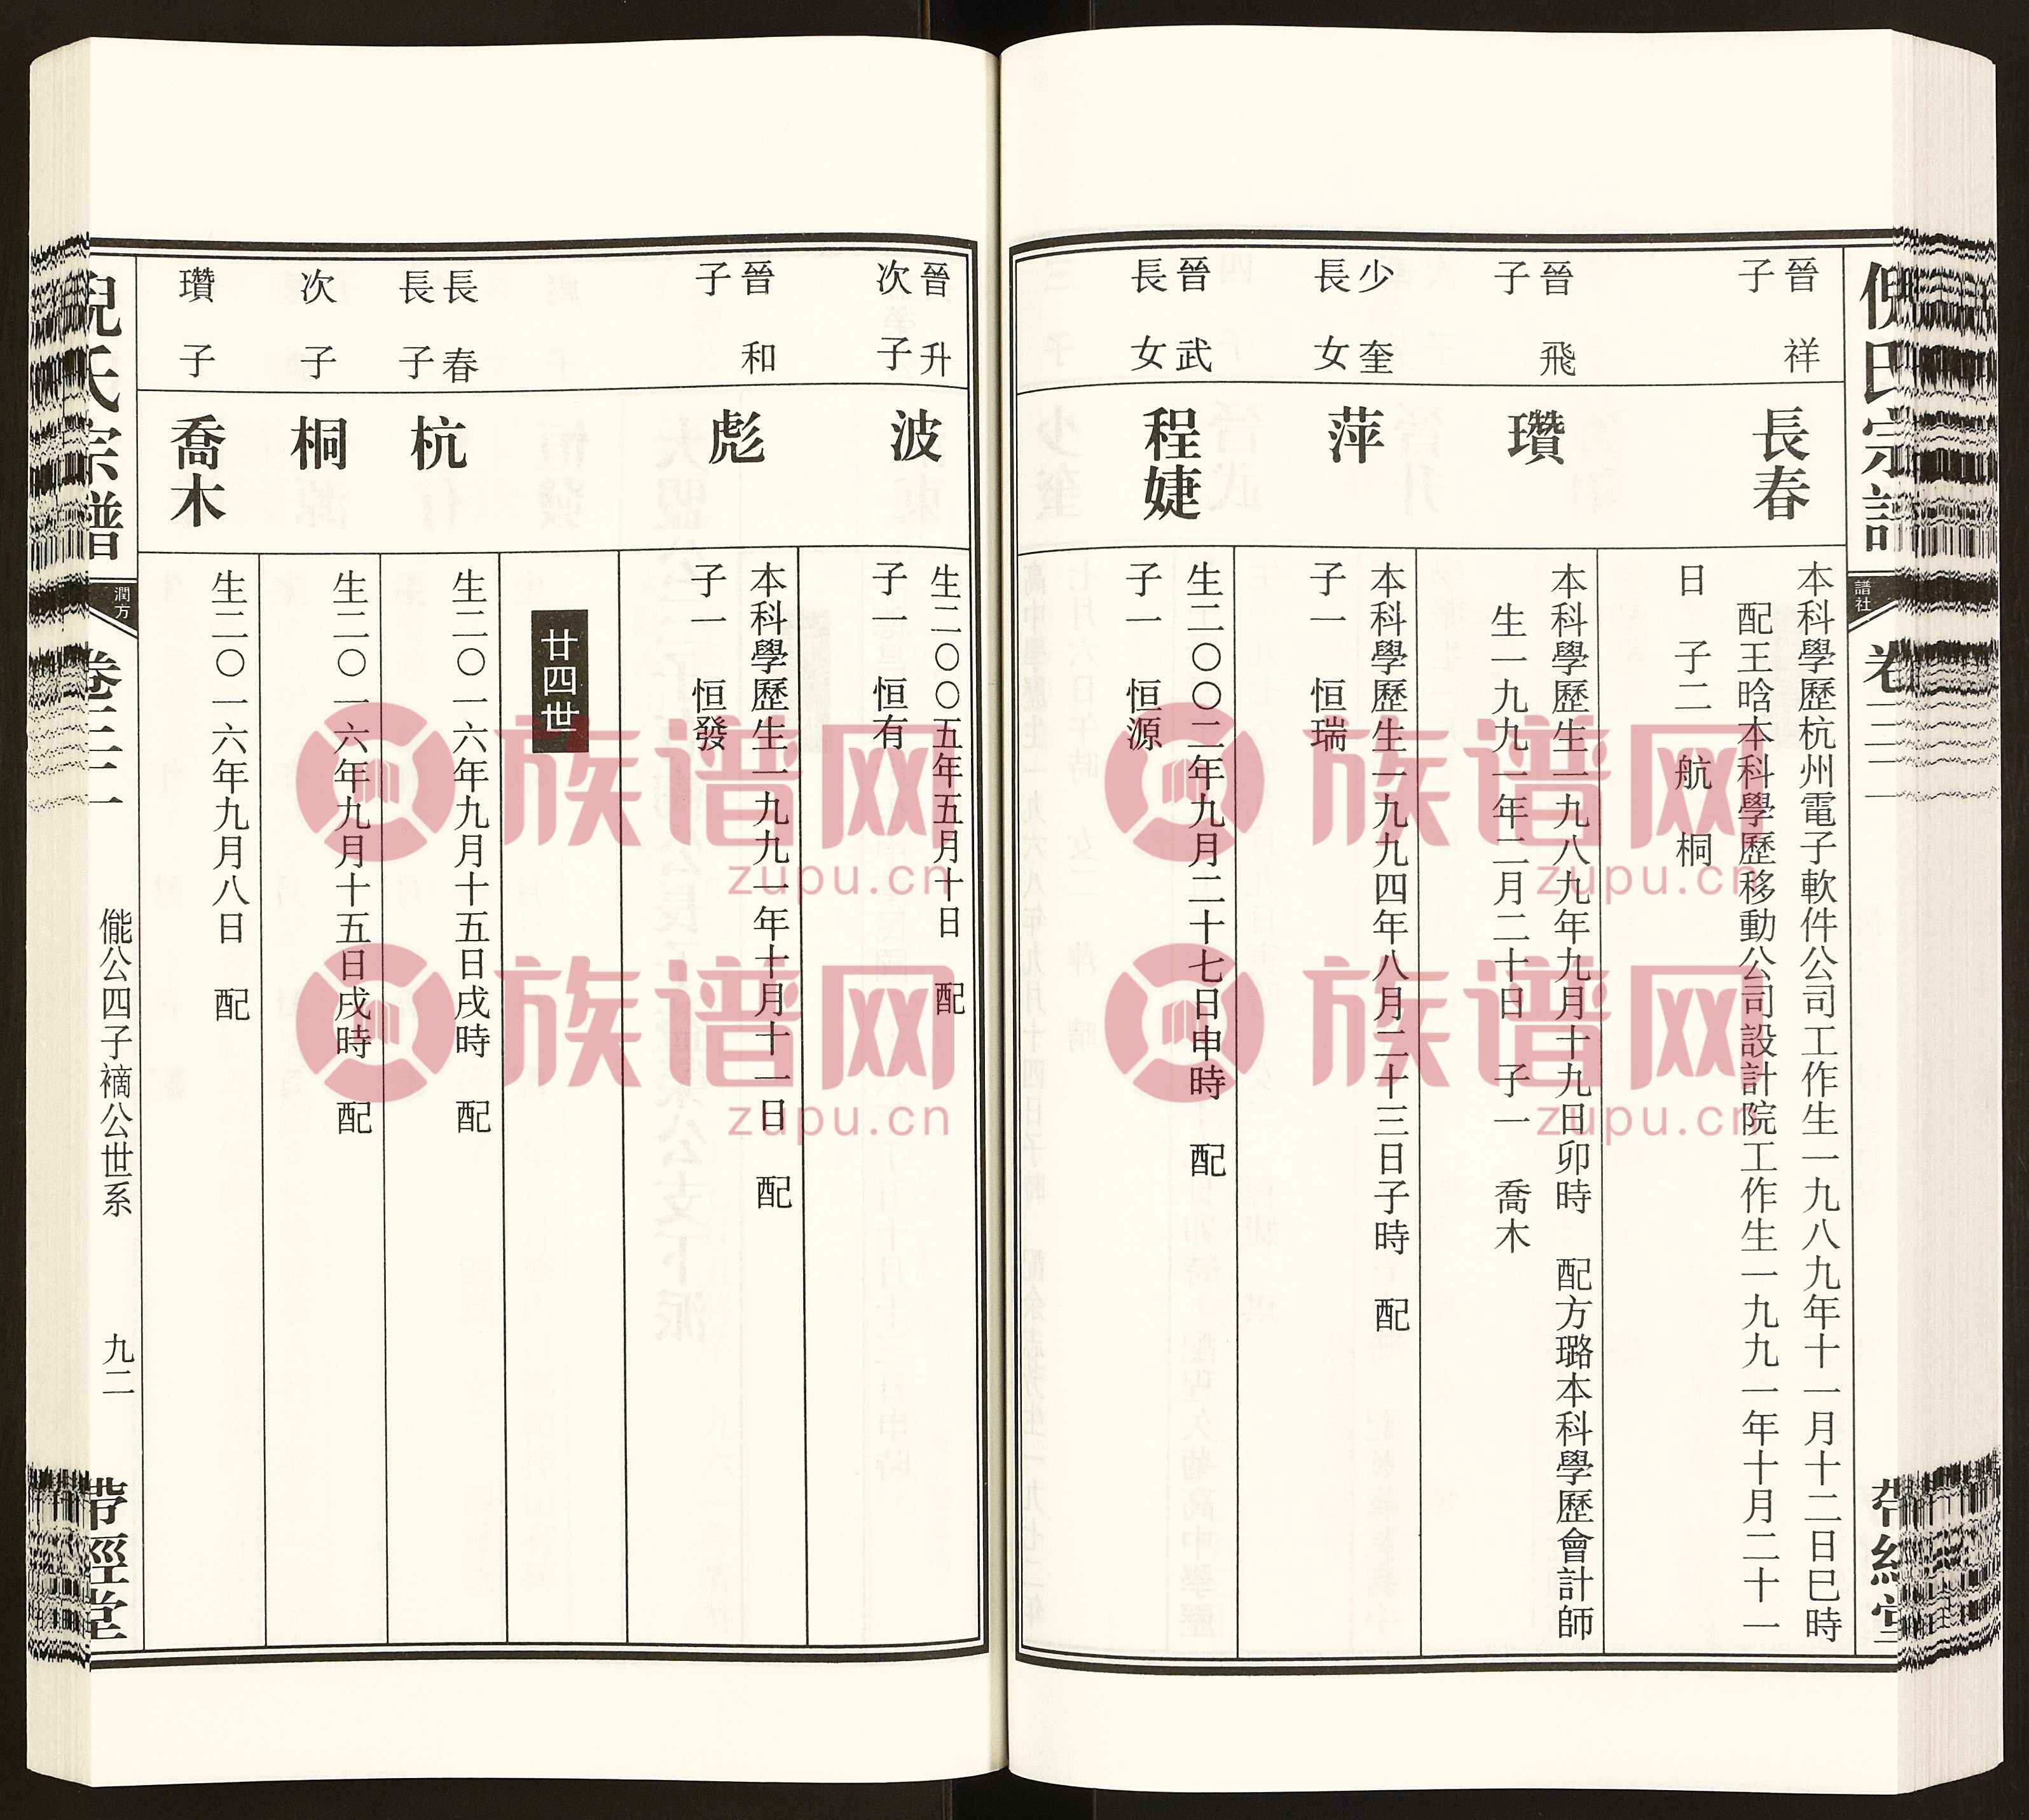 倪氏宗譜
譜社
卷三二
帶經堂
晉祥
子
長春
本科學歷杭州電子軟件公司工作生一九八九年十一月十二日巳時
配王晗本科學歷移動公司設計院工作生一九九一年十月二十一
日　子二　航　桐
晉飛
子
瓚
本科學歷生一九八九年九月十九日卯時　配方璐本科學歷會計師
生一九九一年二月二十日　子一　喬木
少奎
長女
萍
本科學歷生一九九四年八月二十三日子時　配
子一　恒瑞
晉武
長女
程婕
生二〇〇二年九月二十七日申時　配
子一　恒源
晉升
次子
波
生二〇〇五年五月十日　配
子一　恒有
晉和
子
彪
本科學歷生一九九一年十月十一日　配
子一　恒發
廿四世
長春
長子
杭
生二〇一六年九月十五日戌時　配
次子
桐
生二〇一六年九月十五日戌時　配
瓚子
喬木
生二〇一六年九月八日　配
倪氏宗譜
潤方
卷三二
能公四子禘公世系
九二
帶經堂
族谱网
zupu.cn
族谱网
zupu.cn
族谱网
zupu.cn
族谱网
zupu.cn